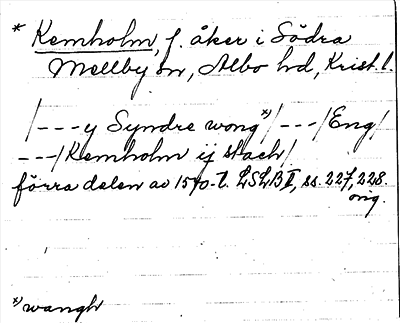 * Kemholm, f. åker i Södra
Mellby sn, Albo hd, Krist l.
/---y Syndre wong*)/---/Eng/
---/Kemholm ij stach/
förra delen av 1570-t. LSLB II, ss. 227, 228.
orig.
*) wangh